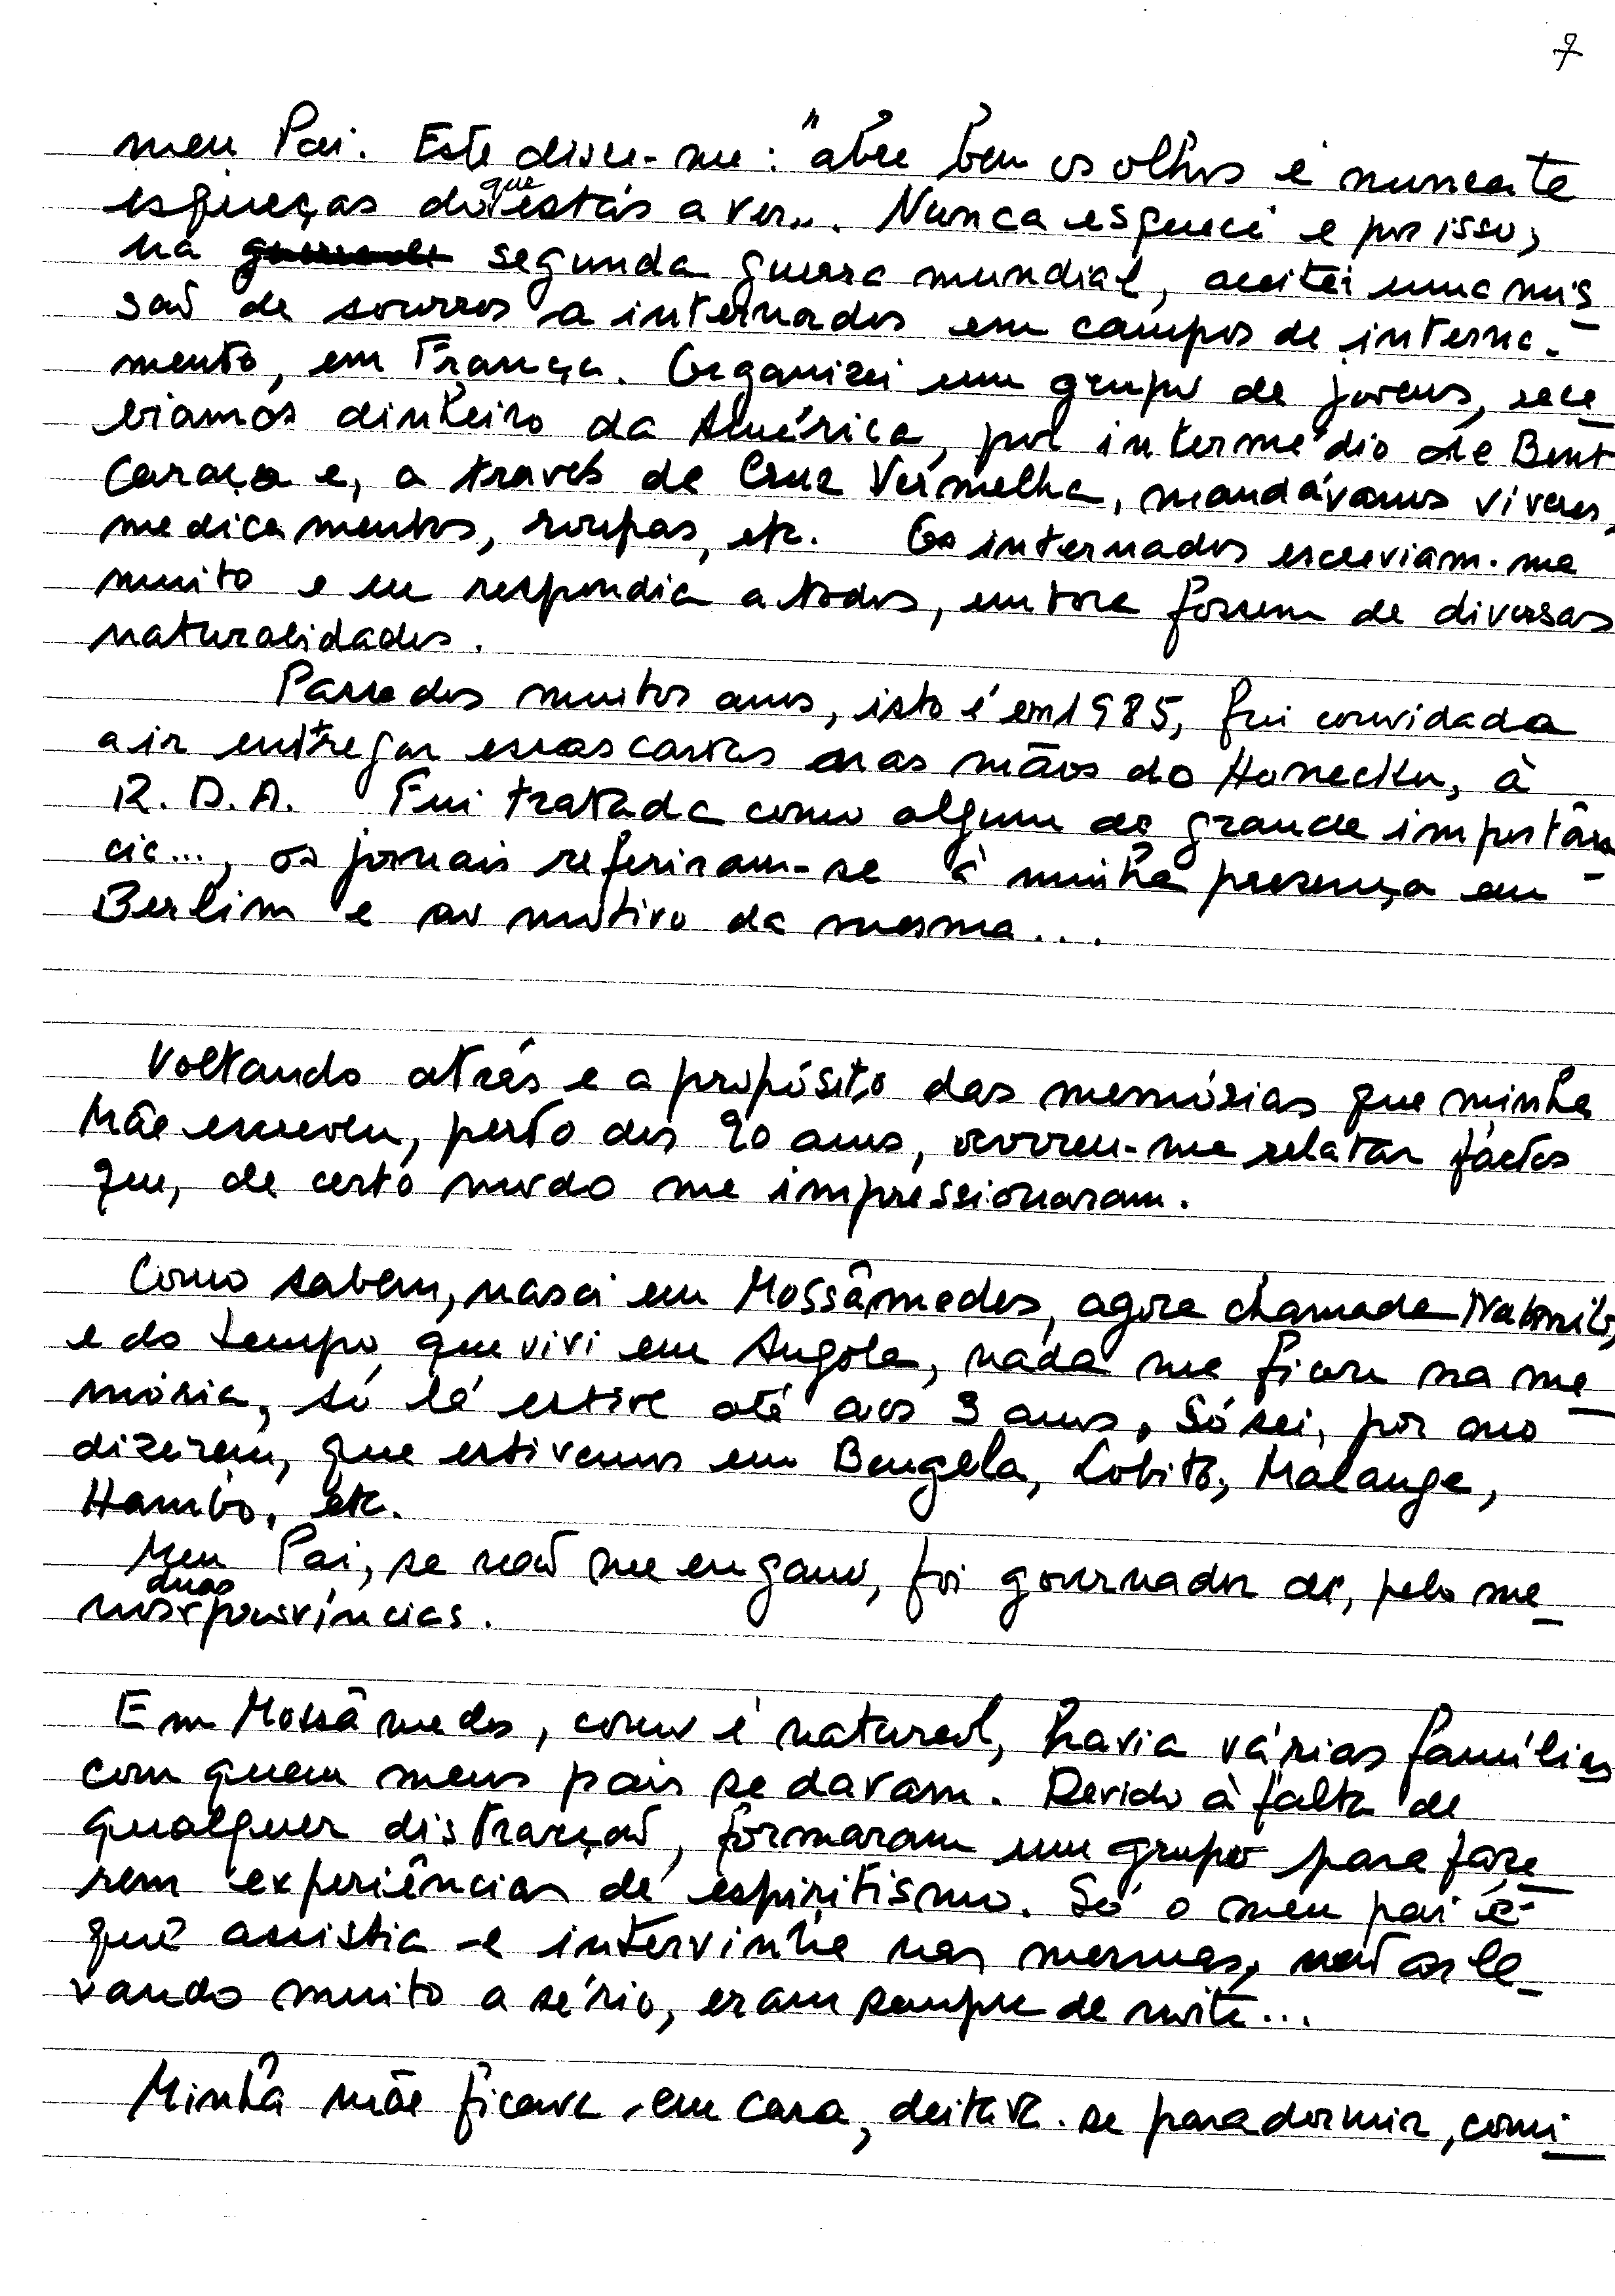 7
meu Pai. Este disse-me: "abre bem os olhos e nunca te
esqueças do que estás a ver". Nunca esqueci e por isso,
na segunda guerra mundial, aceitei uma mis_
são de socorros a internados em campos de interna-
mento, em França. Organizei um grupo de jovens, rece_
biamos dinheiro da América, por intermédio de Bent
Caraça e, a través da Cruz Vermelha, mandávamos viveres,
medicamentos, roupas, etc. Os internados escreviam-me
muito e eu respondia a todos, embora fossem de diversas
naturalidades.
Passados muitos anos, isto é em 1985, fui convidada
a ir entregar essas cartas nas mãos do Honecker, à
R.D.A. Fui tratada como alguem de grande importân
cia..., os jornais referiram-se à minha presença em
Berlim e ao motivo da mesma...
Voltando atrás e a propósito das memórias que minha
Mãe escreveu, perto dos 90 anos, ocorreu-me relatar factos
que, de certo modo me impressionaram.
Como sabem, nasci em Mossâmedes, agora chamada
e do tempo que vivi em Angola, nada me ficou na me_
mória, só lá estive até aos 3 anos. Só sei, por mo
dizerem, que estivemos em Bengela, Lobito, Malange,
Hambo, etc.
Meu Pai, se não me engano, foi governador de, pelo me_
nos duas provincias.
Em Mossâmedes, como é natural, havia várias familias
com quem meus pais se davam. Devido à falta de
qualquer distração, formaram um grupo para faze_
rem experiências de espiritismo. Só o meu pai é
que assistia e intervinha nas mesmas, não as le_
vando muito a sério, eram sempre de noite...
Minha mãe ficava em casa, deitava-se para dormir, comi_